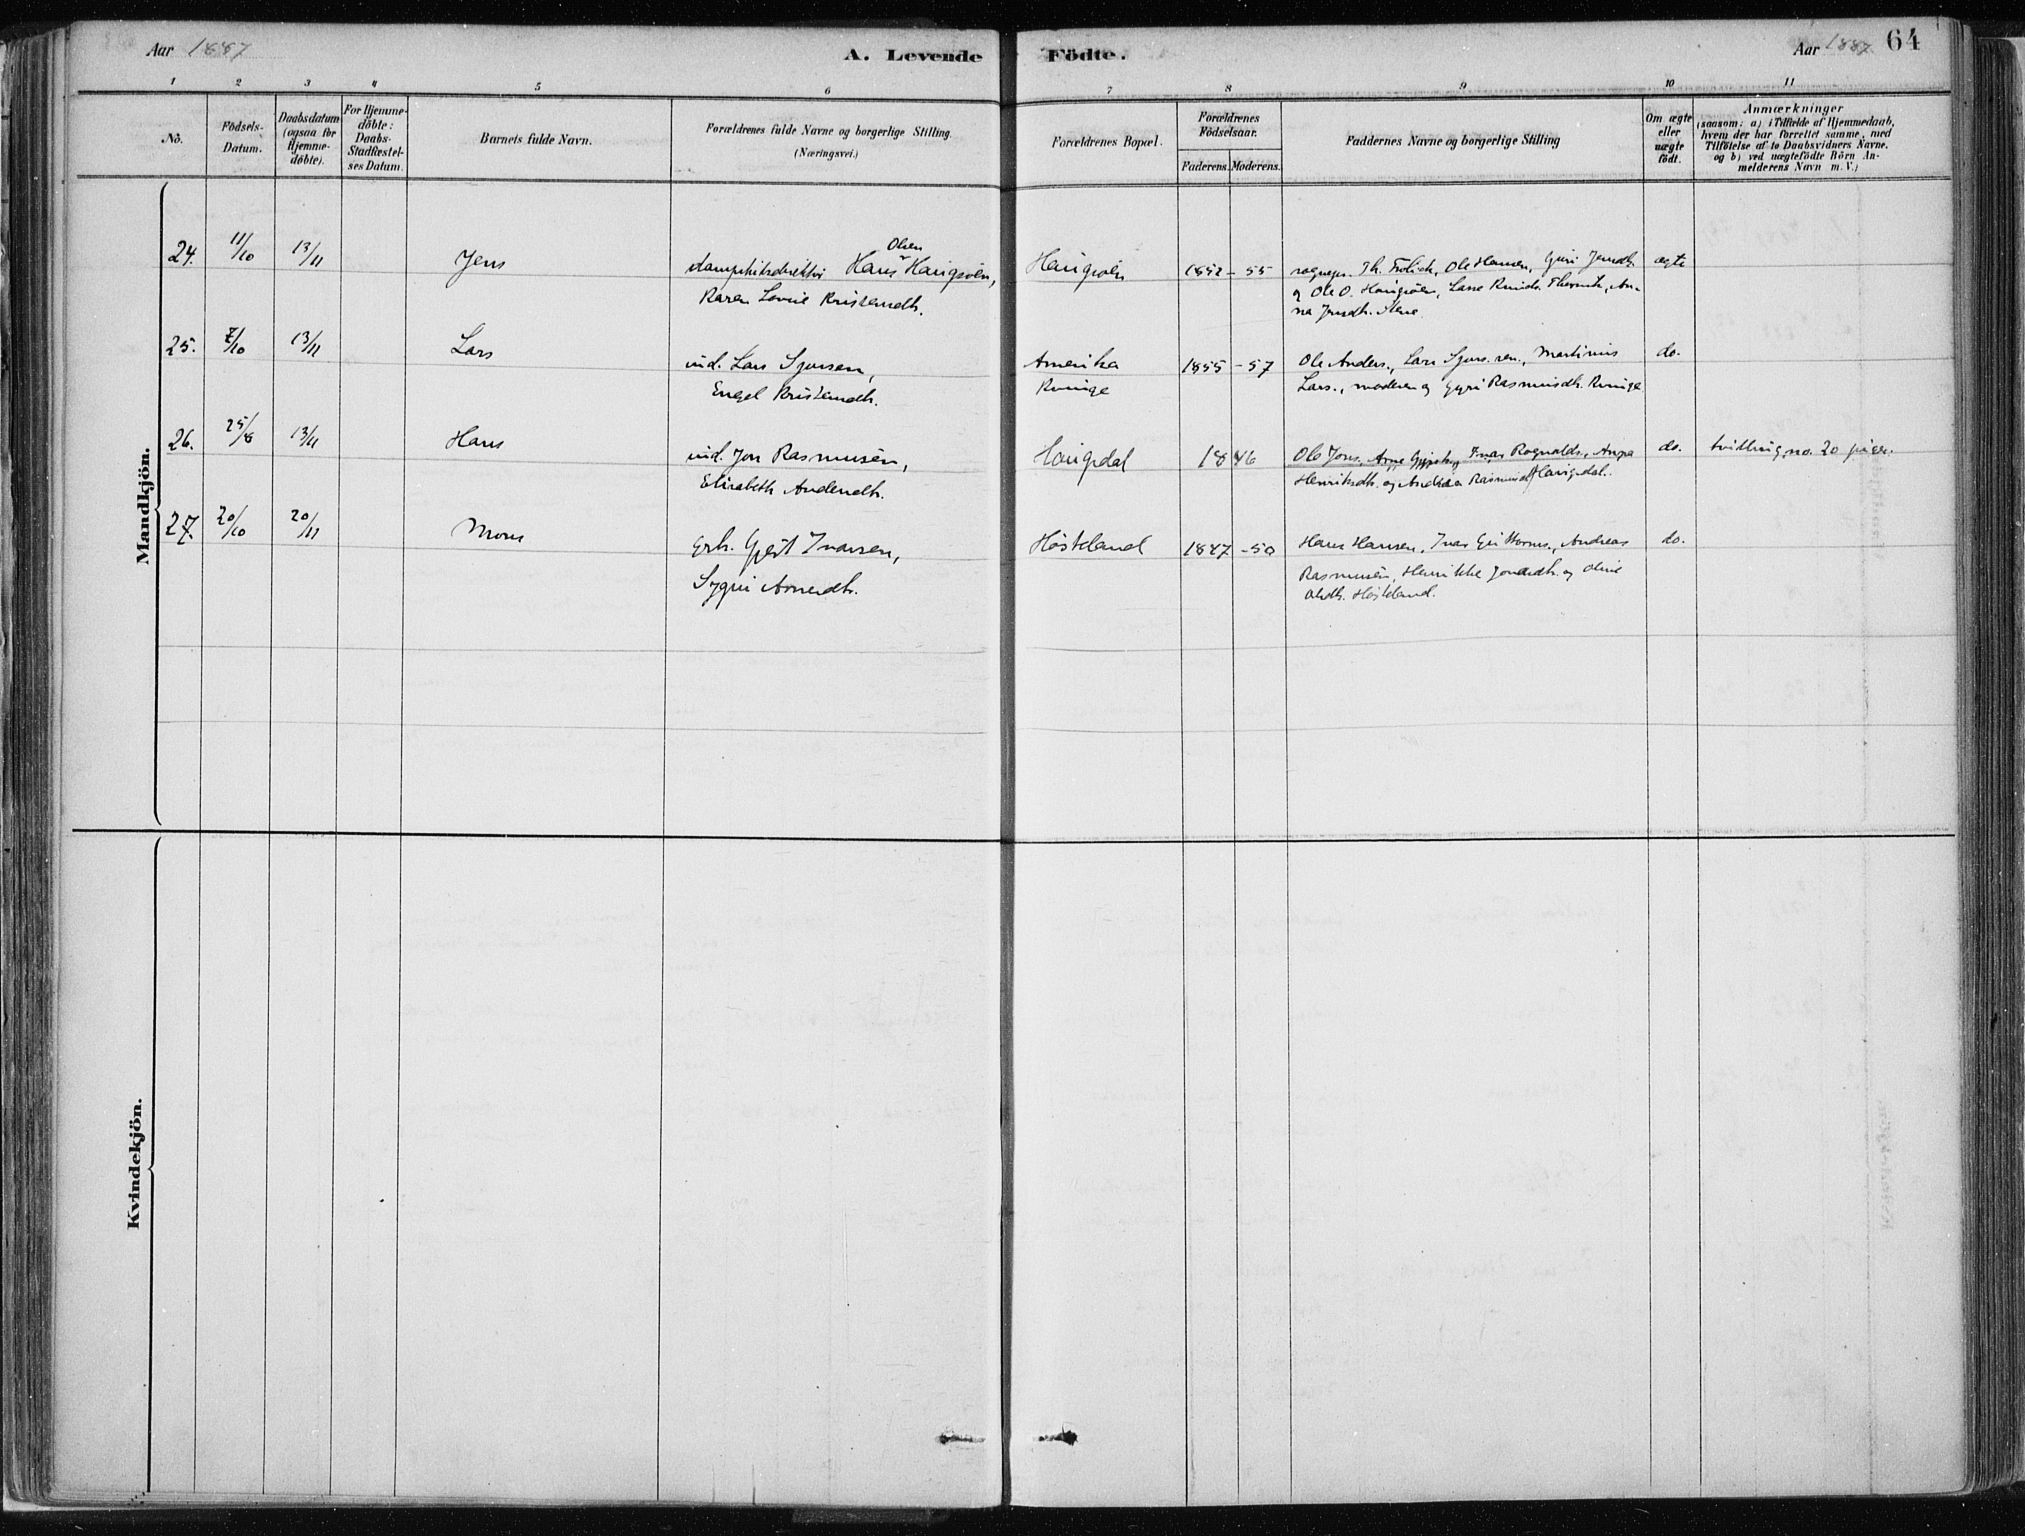 Aar 1887 A. Levende Födte. Aar 1887 64
1 2 3 4 5 6 7 8 9 10 11
No. Födsels-Datum. Daabsdatum (ogsaa for Hjemme-döbte). For Hjemme-döbte: Daabs-Stadfæstel-ses Datum. Barnets fulde Navn. Forældrenes fulde Navne og borgerlige Stilling. (Næringsvei.) Forældrenes Bopæl. Forældrenes Födselsaar. Faderens. Moderens. Faddernes Navne og borgerlige Stilling Om ægte eller uægte födt. Anmærkninger (saasom: a) i Tilfælde af Hjemmedaab, hvem der har forrettet samme, med Tilföielse af to Daabsvidners Navne, og b) ved uægtefödte Börn An-melderens Navn m. V.)
Mandkjön.
Olsen
24. 11/10 13/11 Jens Hans Haugsöen, Haugsöen 1852 - 55 Th. Frölich, Ole Hansen, Guri Jensdtr. ægte
Karen Lovise Kristensdtr. og Ole O. Haugsöen, An-
na Jensdtr.
25. 7/10 13/11 Lars ind. Lars Sjursen, Amerika 1855 - 57 Ole Anders., Lars Sjurs. sen., Martinus do.
Engel Kristensdtr. Kvinge Lars., moderen og Gyri Rasmusdtr. Kvinge
26. 25/8 13/11 Hans ind. Jon Rasmusen, Haugsdal 1846 Ole Jons., Arne Ivar Rognalds., Anna do. tvilling, no. 20 piger.
Elisabeth Andersdtr. Henriksdtr. og Andrea Rasmusdtr. Haugsdal.
27. 20/10 20/11 Mons grb. Gjert Ivarsen, Hösteland 1847 - 50 Hans Hansen, Ivar Guttorms., Andreas do.
Sygni Arnesdtr. Rasmusen, Henrikke Jonasdtr. og Oline
Olsdtr. Hösteland.
Kvindekjön.